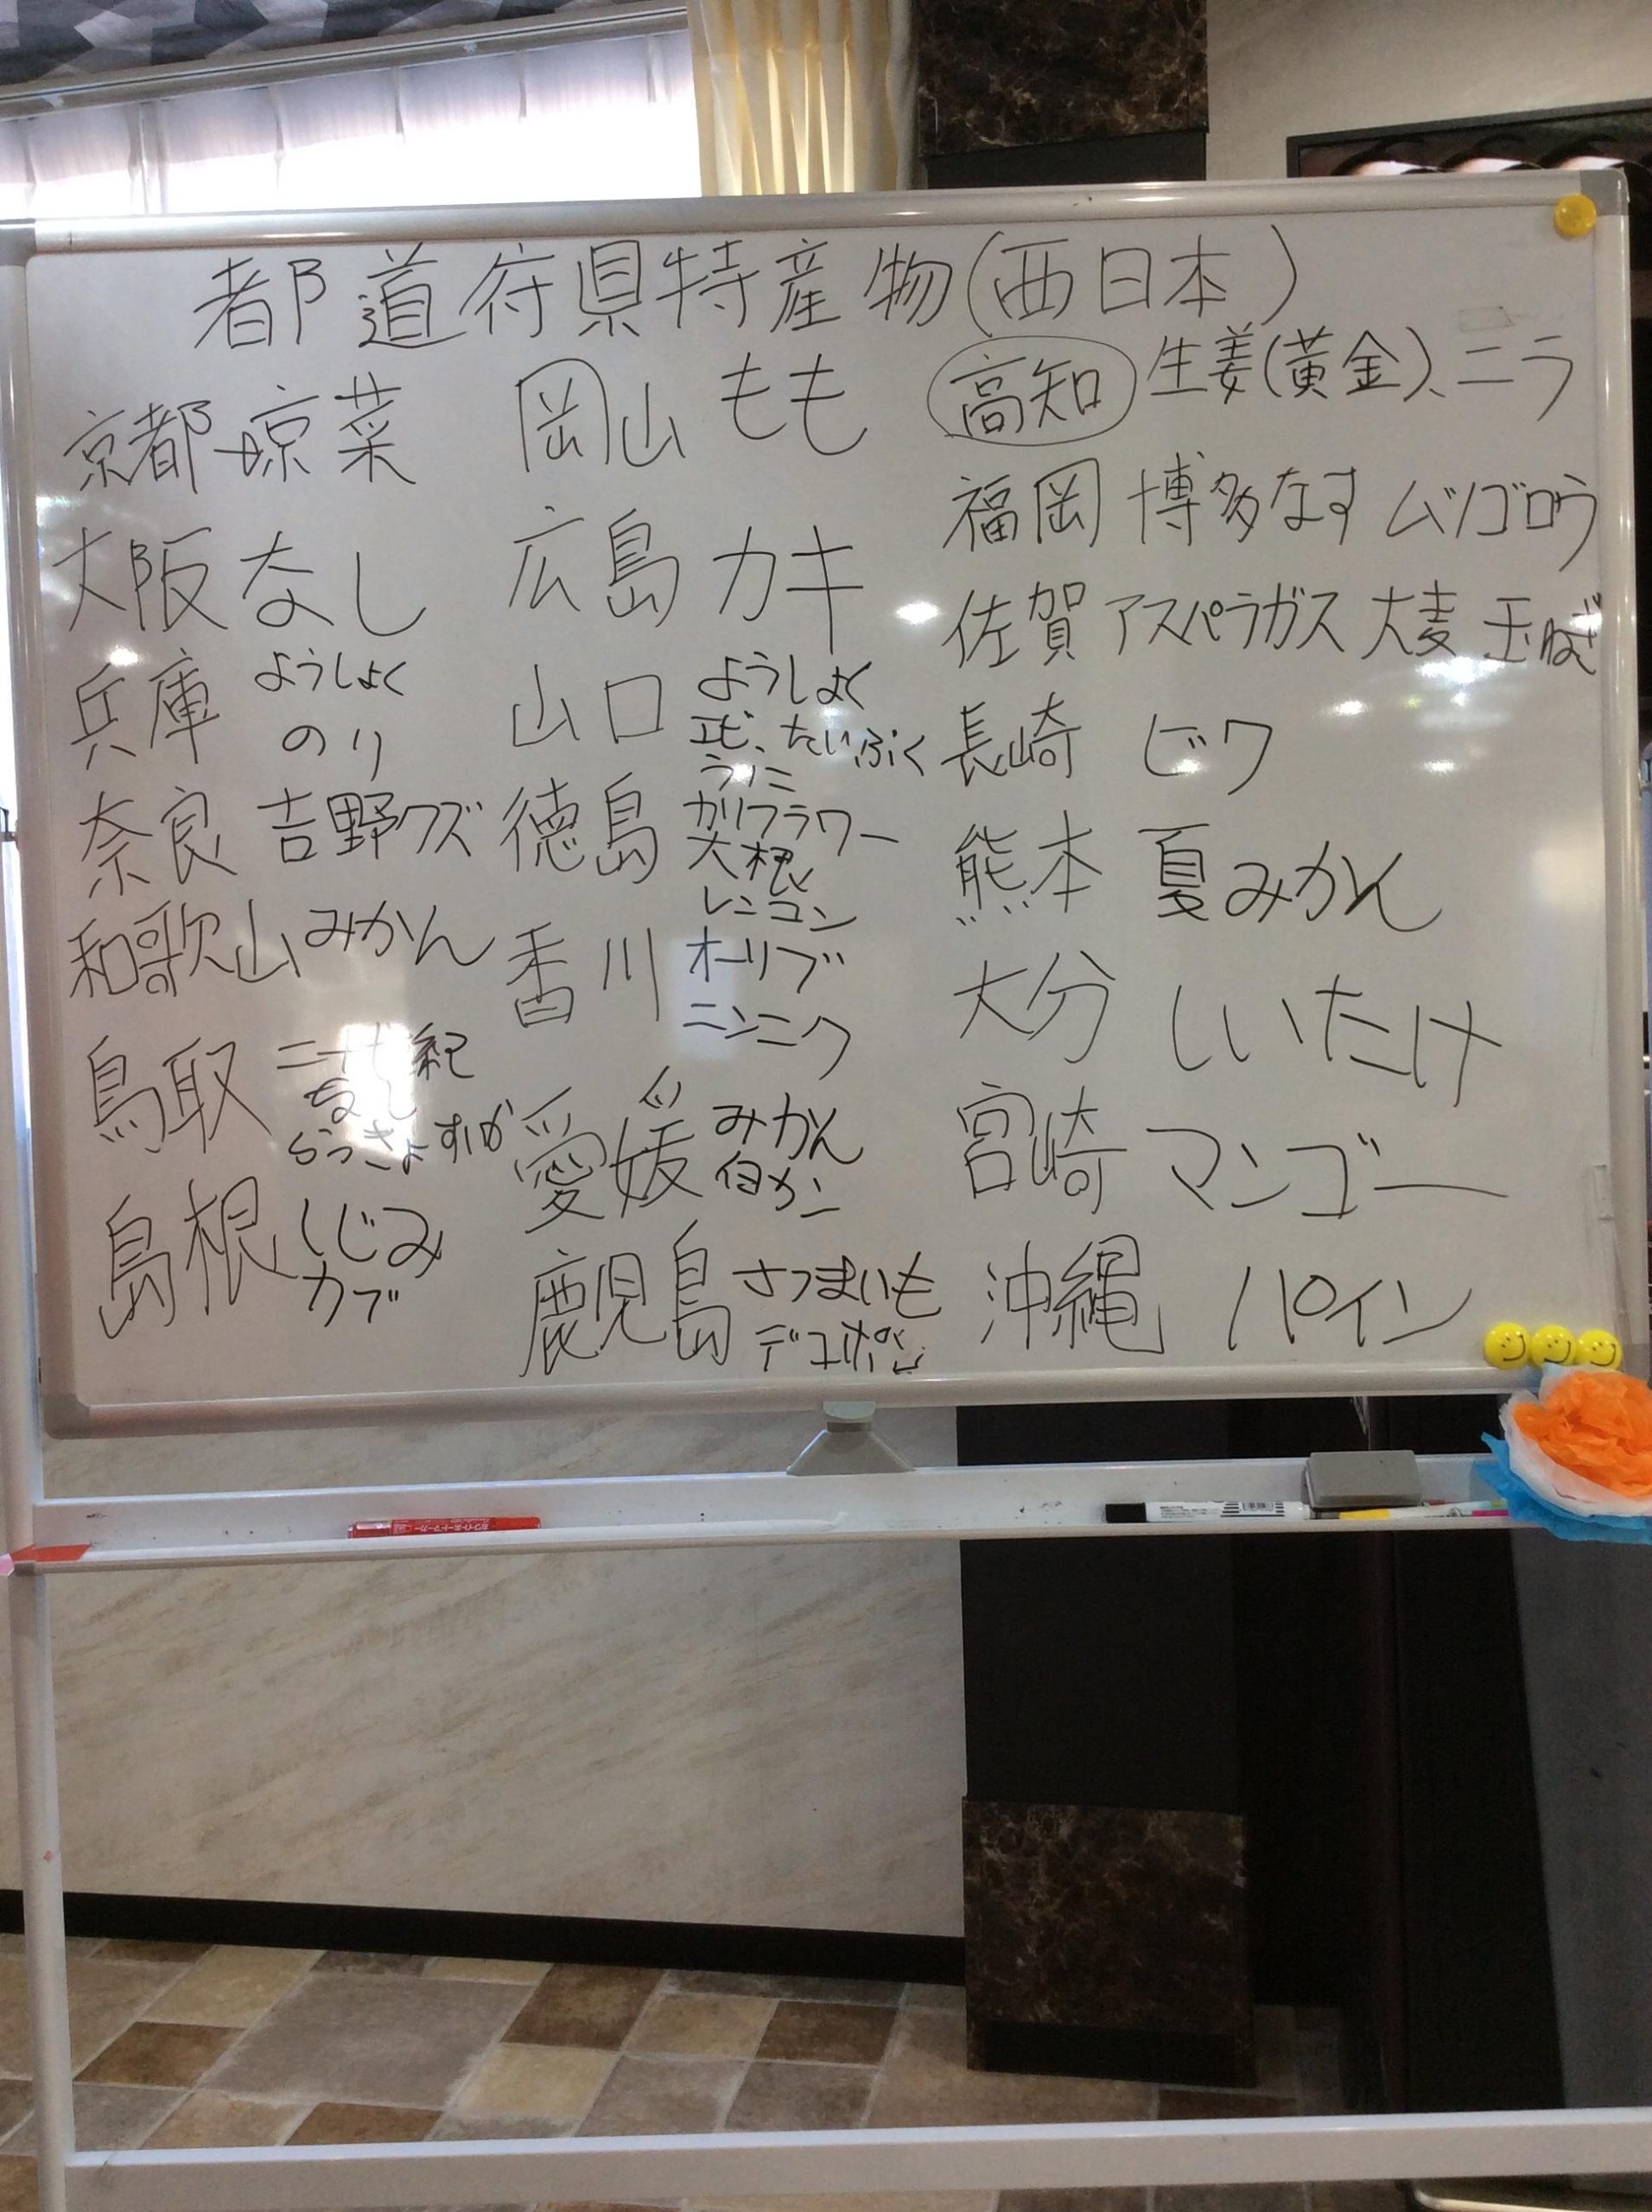 都道府県特産物(西日本)
京都 京菜
大阪 なし
兵庫 ようしょく
のり
奈良 吉野クズ
和歌山 みかん
鳥取 二十世紀
なし
らっきょ すいか
島根 しじみ
カブ
岡山 もも
広島 カキ
山口 ようしょく
エビ、たい、ふく
うに
徳島 カリフラワー
大根
レンコン
香川 オリーブ
ニンニク
愛媛 みかん
伊カン
鹿児島 さつまいも
デコポン
高知 生姜(黄金)、ニラ
福岡 博多なす ムツゴロウ
佐賀 アスパラガス 大麦 玉ねぎ
長崎 ビワ
熊本 夏みかん
大分 しいたけ
宮崎 マンゴー
沖縄 パイン